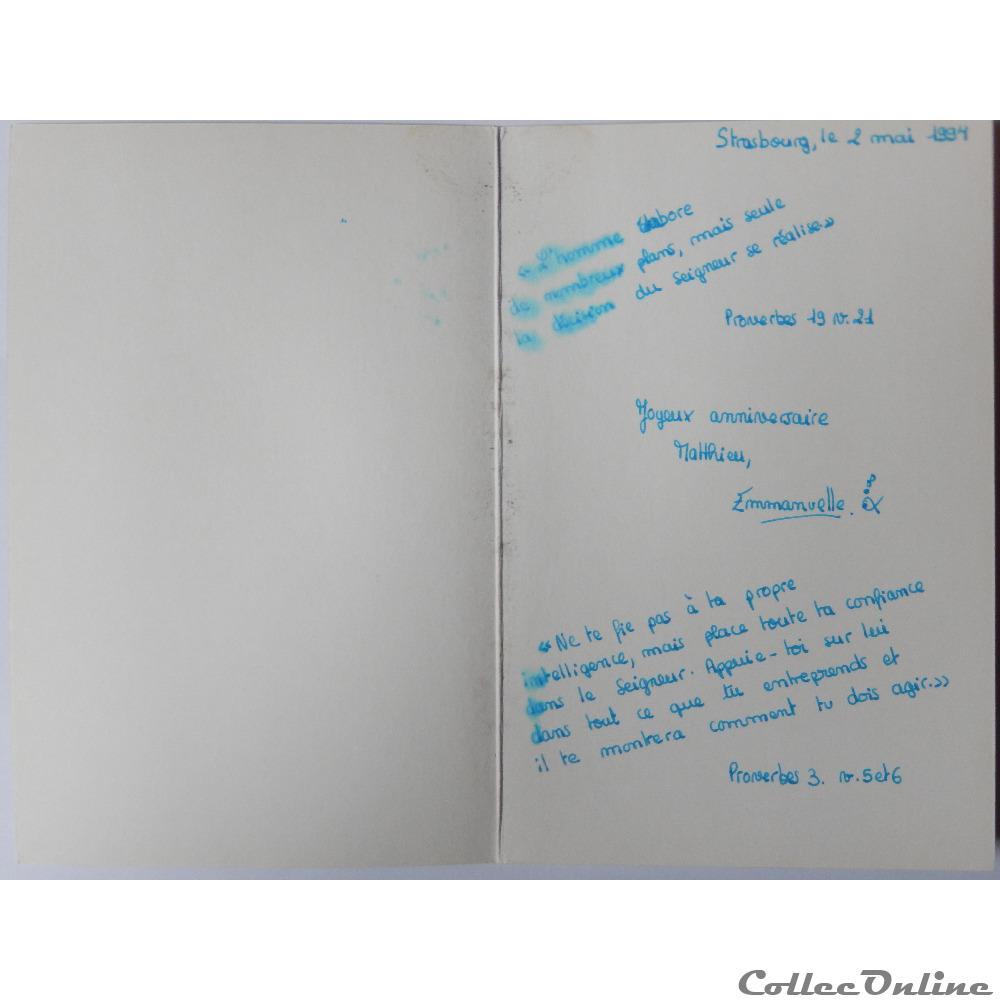 Strasbourg, le 2 mai 1994
« L'homme élabore
de nombreux plans, mais seule
la décision du Seigneur se réalise.»
Proverbes 19 v.21
Joyeux anniversaire
Matthieu,
Emmanuelle.
« Ne te fie pas à ta propre
intelligence, mais place toute ta confiance
dans le Seigneur. Appuie-toi sur lui
dans tout ce que tu entreprends et
il te montrera comment tu dois agir.»
Proverbes 3. v.5et6
CollecOnline